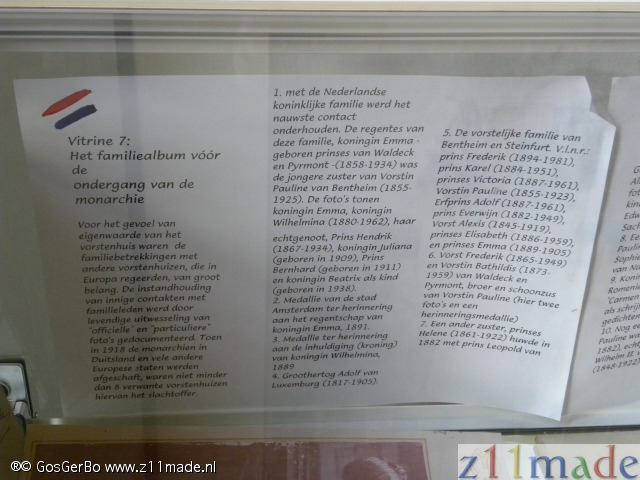 Vitrine 7:
Het familiealbum vóór
de
ondergang van de
monarchie
Voor het gevoel van
eigenwaarde van het
vorstenhuis waren de
familiebetrekkingen met
andere vorstenhuizen, die in
Europa regeerden, van groot
belang. De instandhouding
van innige contacten met
familieleden werd door
levendige uitwesseling van
"officielle" en "particuliere"
foto's gedocumenteerd. Toen
in 1918 de monarchieen in
Duitsland en vele andere
Europese staten werden
afgeschaft, waren niet minder
dan 8 verwante vorstenhuizen
hiervan het slachtoffer.
1. met de Nederlandse
koninklijke familie werd het
nauwste contact
onderhouden. De regentes van
deze familie, koningin Emma -
geboren prinses van Waldeck
en Pyrmont -(1858-1934) was
de jongere zuster van Vorstin
Pauline van Bentheim (1855-
1925). De foto's tonen
koningin Emma, koningin
Wilhelmina (1880-1962), haar
echtgenoot, Prins Hendrik
(1867-1934), koningin Juliana
(geboren in 1909), Prins
Bernhard (geboren in 1911)
en koningin Beatrix als kind
(geboren in 1938).
2. Medaille van de stad
Amsterdam ter herinnering
aan het regentschap van
koningin Emma, 1891.
3. Medaille ter herinnering
aan de inhuldiging (kroning)
van koningin Wilhelmina,
1889
4. Groothertog Adolf van
Luxemburg (1817-1905).
5. De vorstelijke familie van
Bentheim en Steinfurt. V.l.n.r.:
prins Frederik (1894-1981),
prins Karel (1884-1951),
prinses Victoria (1887-1961),
Vorstin Pauline (1855-1923),
Erfprins Adolf (1887-1961),
prins Everwijn (1882-1949),
Vorst Alexis (1845-1919),
prinses Elisabeth (1886-1959),
en prinses Emma (1889-1905)
6. Vorst Frederik (1865-1949)
en Vorstin Bathildis (1873-
1959) van Waldeck en
Pyrmont, broer en schoonzus
van Vorstin Pauline (hier twee
foto's en een
herinneringsmedaille)
7. Een ander zuster, prinses
Helene (1861-1922) huwde in
1882 met prins Leopold van
8. Ee
Pauline
Sophie
van
9. Koni
Romenie
"Carmen
als schrij
gedichten
10. Nog
Pauline
1882), echt
Wilhelm II
(1848-1922
®© GosGerBo www.z11made.nl
z11made